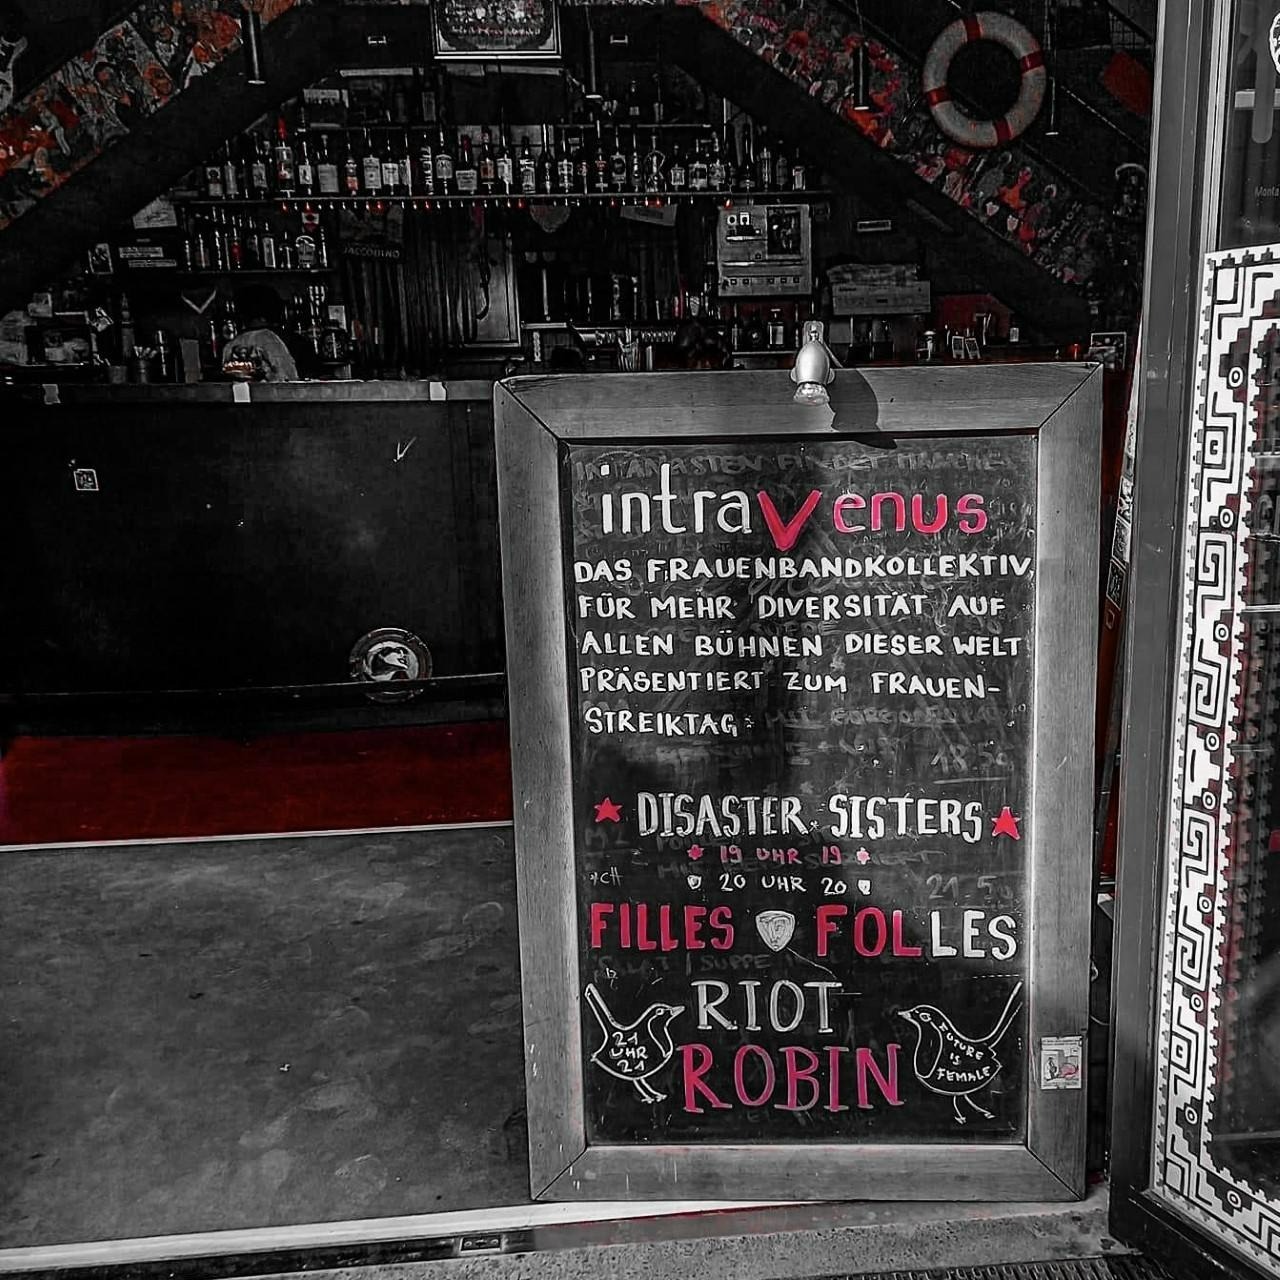 intravenus
DAS FRAUENBANDKOLLEKTIV
FÜR MEHR DIVERSITÄT AUF
ALLEN BÜHNEN DIESER WELT
PRÄSENTIERT ZUM FRAUEN-
STREIKTAG:
18.50
DISASTER SISTERS
19 UHR 19
20 UHR 20
21.50
FILLES FOLLES
RIOT
ROBIN
21
UHR
21
FUTURE
IS
FEMALE